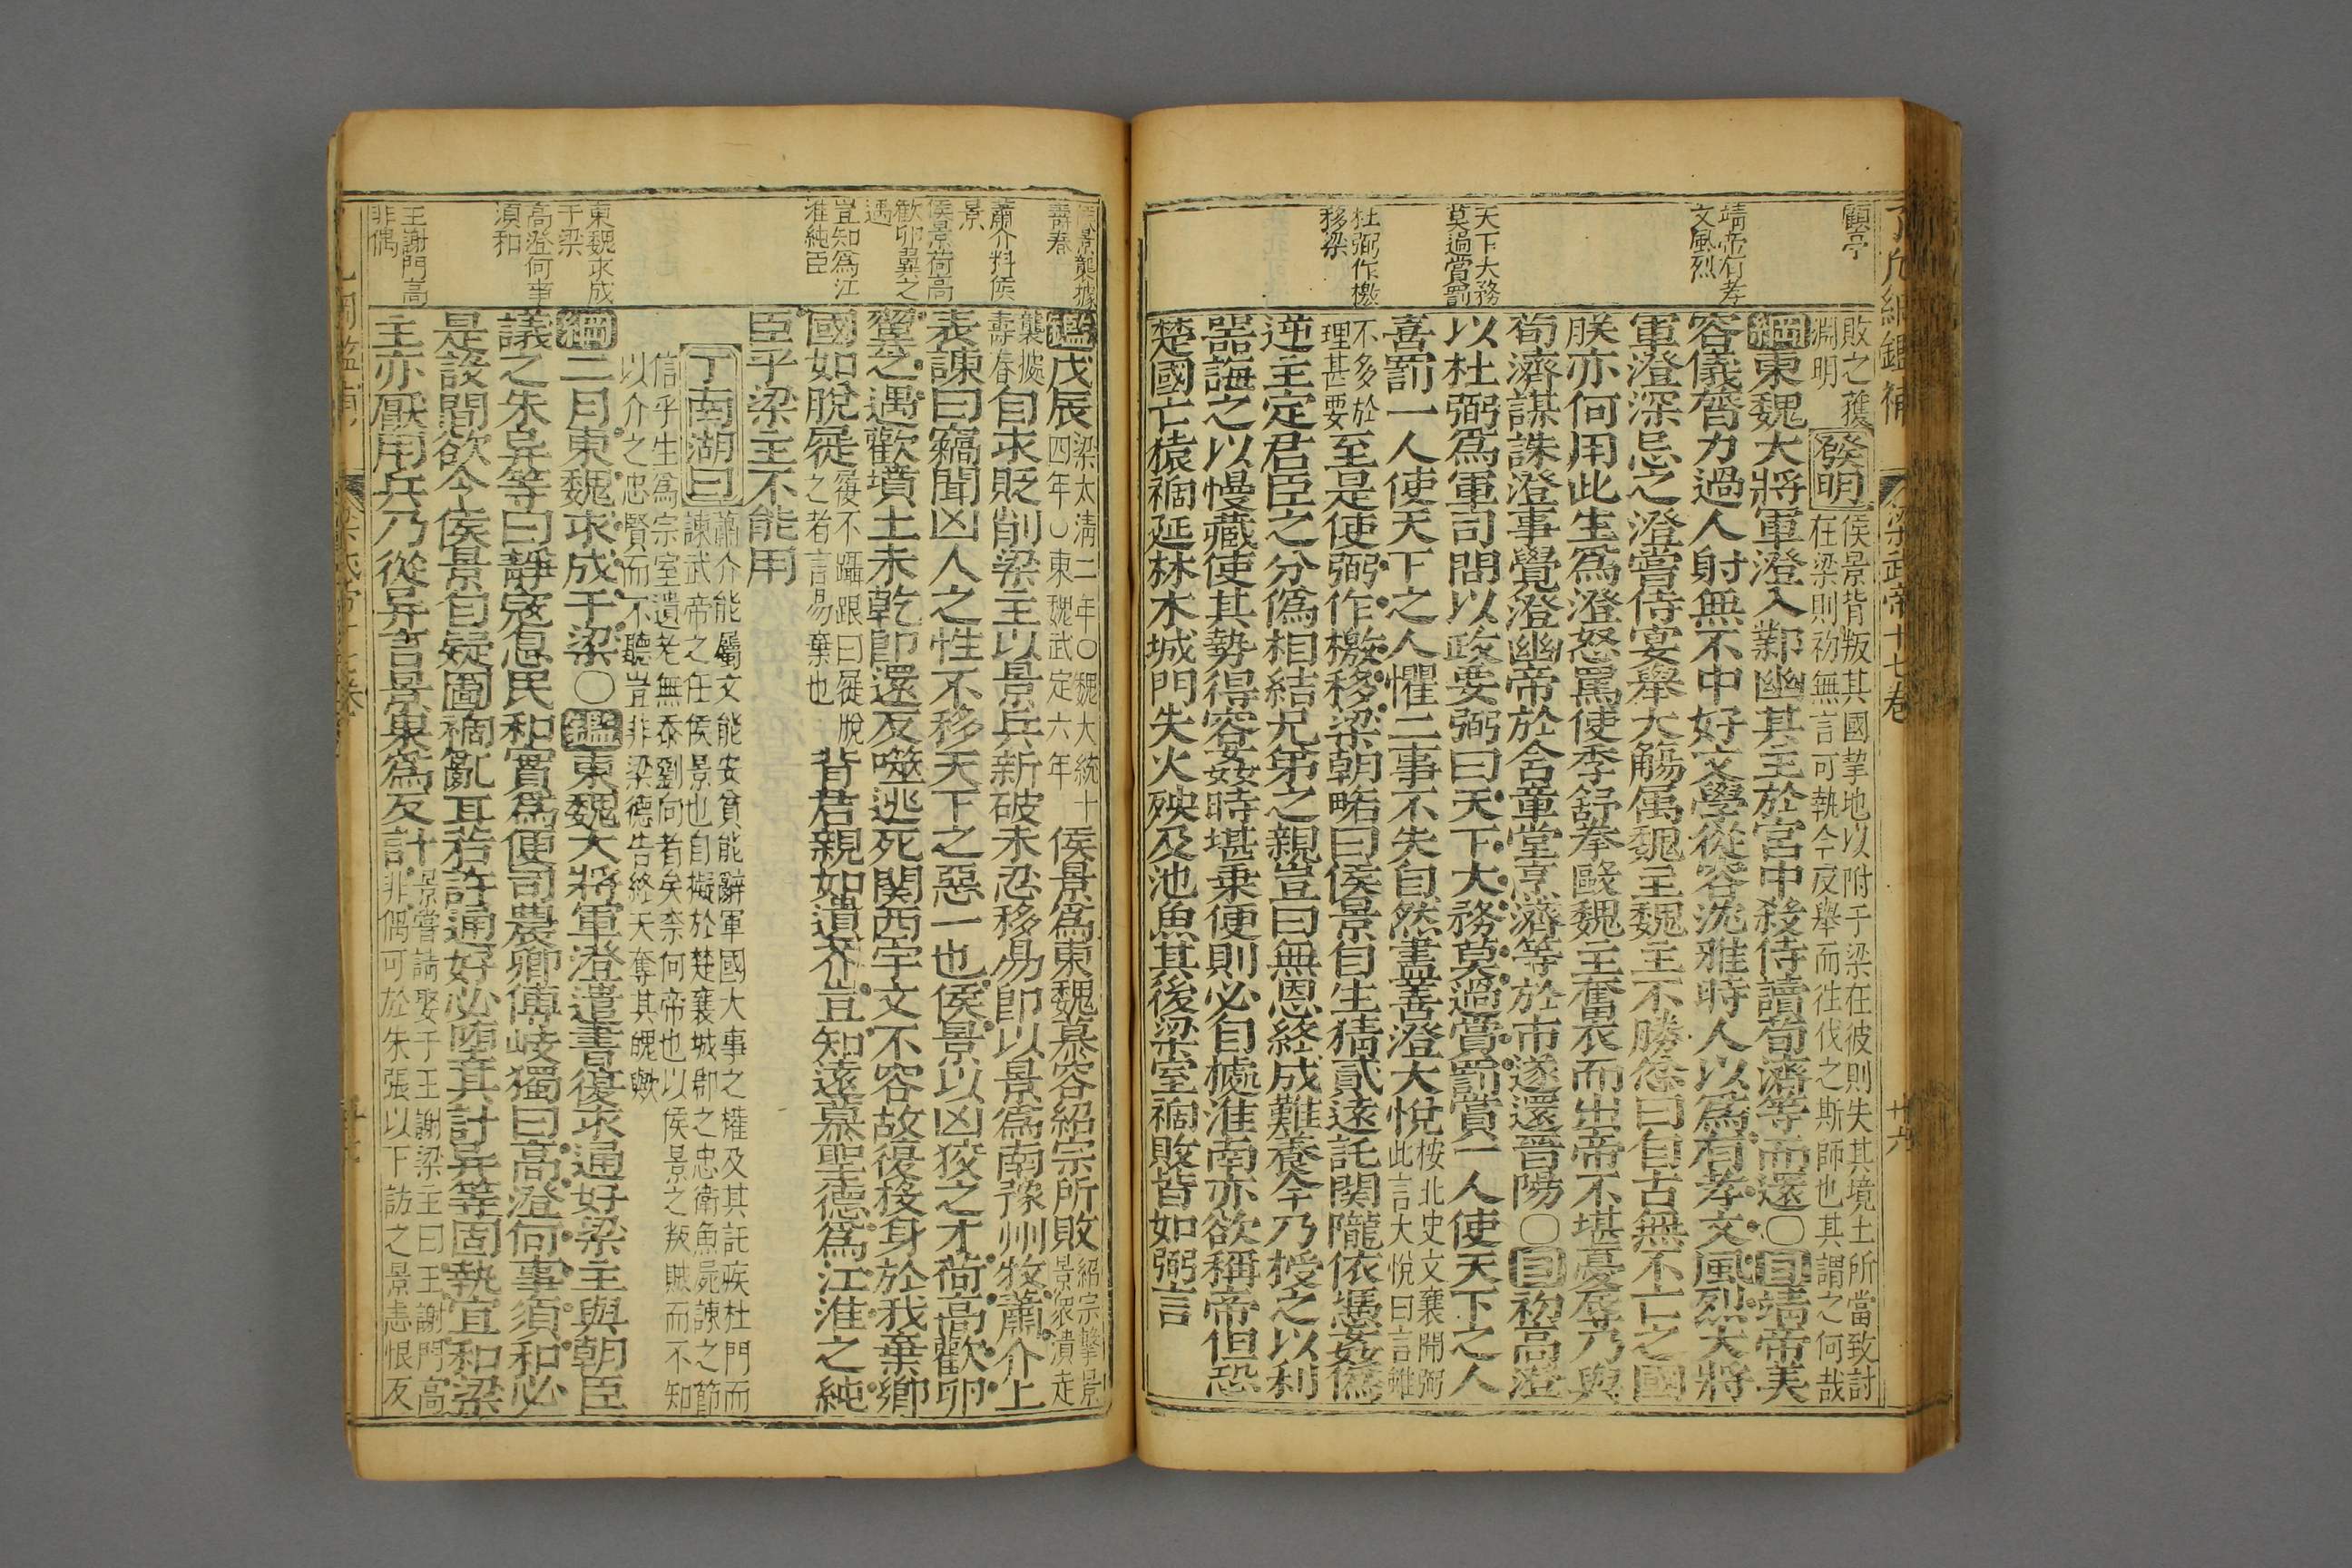 顧亭
靖帝有孝
文風烈
天下大務
莫過賞罰
杜弼作檄
移梁
梁武帝十七卷
廿六
敗之獲
淵明
發明
侯景背叛其國挈地以附于梁在彼則失其境土所當致討
在梁則初無言可執今反舉而徃伐之斯師也其謂之何哉
綱東魏大將軍澄入鄴幽其主於宮中殺侍讀荀濟等而還○目靖帝美
容儀膂力過人射無不中好文學從容沈雅時人以為有孝文風烈大將
軍澄深忌之澄嘗侍宴舉大觴属魏主魏主不勝忿曰自古無不亡之國
朕亦何用此生爲澄怒罵使季舒拳毆魏主奮衣而出帝不堪憂辱乃與
荀濟謀誅澄事覺澄幽帝於含章堂烹濟等於市遂還晉陽○目初高澄
以杜弼爲軍司問以政要弼曰天下大務莫過賞罰賞一人使天下之人
喜罰一人使天下之人懼二事不失自然盡善澄大悅
桉北史文襄開弼
此言大悅曰言雖
不多於
理甚要
至是使弼作檄移梁朝畧曰侯景自生猜貳遠託関隴依憑姦僞
逆主定君臣之分僞相結兄弟之親豈曰無恩終成難養今乃授之以利
噐誨之以慢藏使其勢得容姦時堪乗便則必自據淮南亦欲稱帝但恐
楚國亡猿禍延林木城門失火殃及池魚其後梁室禍敗皆如弼言
侯景襲據
壽春
蕭介料侯
景
侯景荷高
歡卵翼之
遇
豈知為江
淮純臣
東魏求成
于梁
高澄何事
須和
王謝門高
非偶
鑑戊辰
梁太淸二年○魏大統十
四年○東魏武定六年
侯景爲東魏慕容紹宗所敗
紹宗擊景
景衆潰走
襲據
壽春
自求貶削梁主以景兵新破未忍移易即以景爲南豫州牧蕭介上
表諫曰竊聞凶人之性不移天下之惡一也侯景以凶狡之才荷高歡卵
翼之遇歡墳土未乾即還反噬逃死関西宇文不容故復投身於我棄鄉
國如脫屣
屣不躡跟曰屣脫
之者言易棄也
背君親如遺芥豈知遠慕聖德為江淮之純
臣乎梁主不能用
丁南湖曰
蕭介能屬文能安貧能辭軍國大事之權及其託疾杜門而
諫武帝之任侯景也自擬於楚襄城郢之忠衛魚屍諫之節
信乎生爲宗室遺老無忝劉向者矣柰何帝也以侯景之叛賊而不知
以介之忠賢而不聽豈非梁德告終天奪其魄歟
綱二月東魏求成于梁○鑑東魏大將軍澄遣書復求通好梁主與朝臣
議之朱异等曰靜寇息民和實爲便司農卿傅岐獨曰高澄何事須和必
是設間欲令侯景自疑圖禍亂耳若許通好必墮其計异等固執宜和梁
主亦厭用兵乃從异言景果為反計
景嘗請娶于王謝梁主曰王謝門高
非偶可於朱張以下訪之景恚恨反